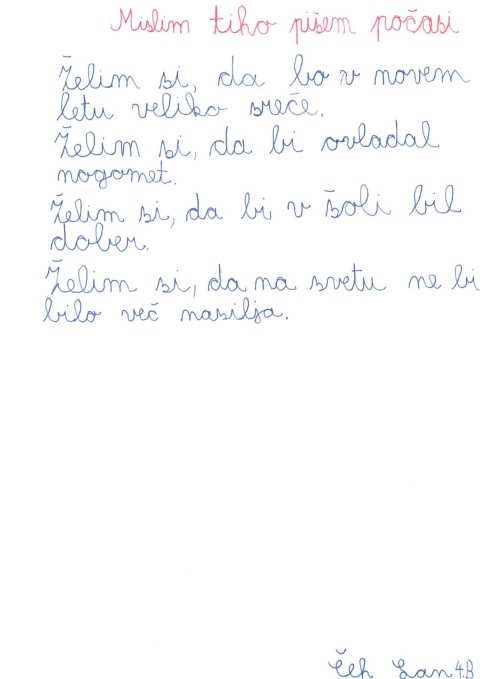 Mislim tiho pišem počasi
Želim si, da bo v novem
letu veliko sreče.
Želim si, da bi ovladal
nogomet.
Želim si, da bi v šoli bil
dober.
Želim si, da na svetu ne bi
bilo več nasilja.
Čeh Lan 4.B